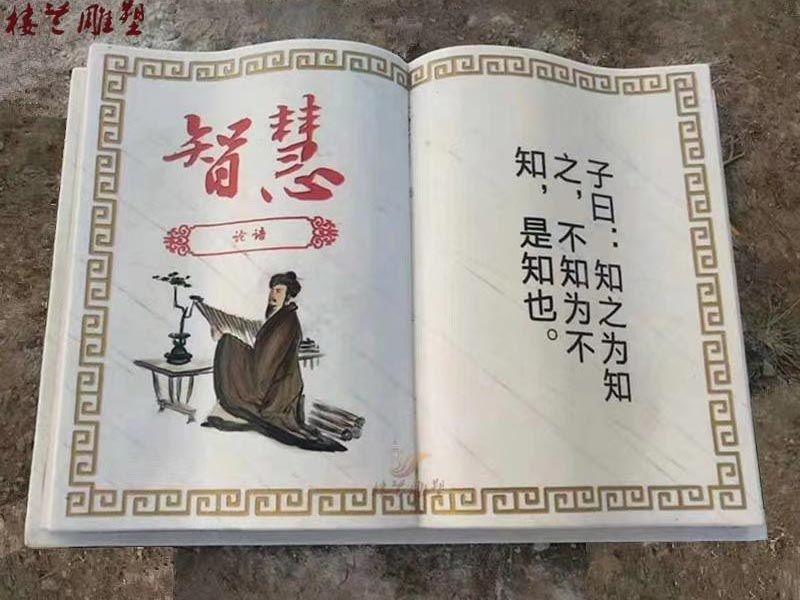 楼兰雕塑
智慧
论语
子曰：知之为知
之，不知为不
知，是知也。
楼兰雕塑